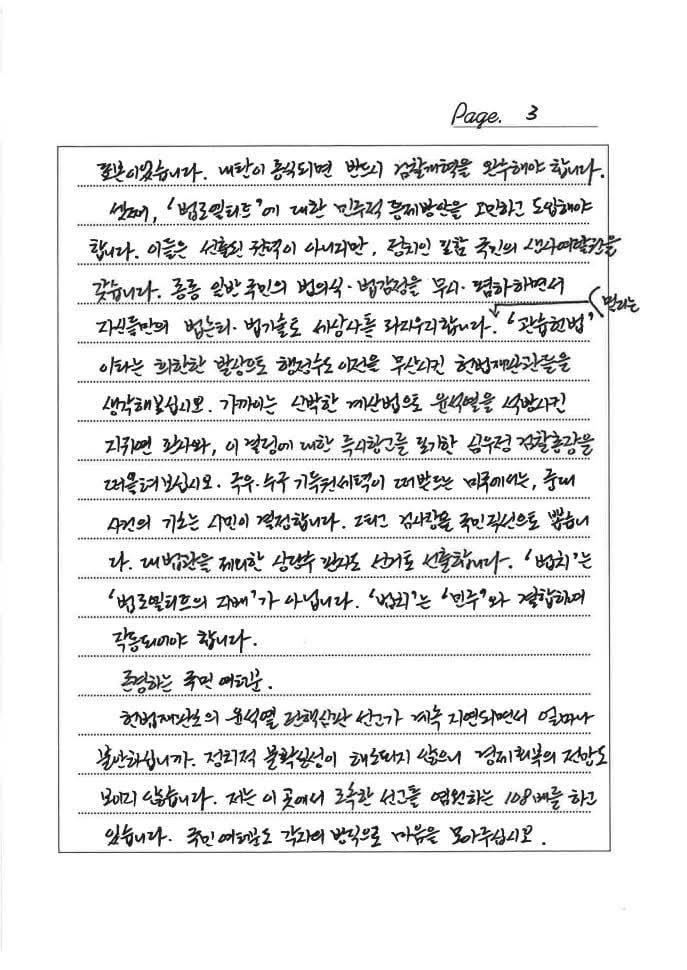 Page. 3
표본이었습니다. 내란이 종식되면 반드시 검찰개혁을 완수해야 합니다.
셋째, '법조엘리트'에 대한 민주적 통제방안을 고민하고 도입해야
합니다. 이들은 선출된 권력이 아니지만, 정치인 포함 국민의 생사여탈권을
갖습니다. 종종 일반 국민의 법의식·법감정을 무시·폄하하면서
자신들만의 법논리·법기술로 세상사를 좌지우지합니다. '관습헌법' 멀리는
이라는 희한한 발상으로 행정수도 이전을 무산시킨 헌법재판관들을
생각해보십시오. 가까이는 신박한 계산법으로 윤석열을 석방시킨
지귀연 판사와, 이 결정에 대한 즉시항고를 포기한 심우정 검찰총장을
떠올려보십시오. 주류 기득권세력이 떠받드는 미국에서는, 중대
사건의 기소는 시민이 결정합니다. 그리고 검사장을 국민직선으로 뽑습니
다. 대법관을 제외한 상당수 판사도 선거로 선출합니다. '법치'는
'법조엘리트의 지배'가 아닙니다. '법치'는 '민주'와 결합하며
작동되어야 합니다.
존경하는 국민 여러분.
헌법재판소의 윤석열 탄핵심판 선고가 계속 지연되면서 얼마나
불안하십니까. 정치적 불확실성이 해소되지 않으니 경제회복의 전망도
보이지 않습니다. 저는 이 곳에서 조속한 선고를 염원하는 108배를 하고
있습니다. 국민 여러분도 각자의 방식으로 마음을 모아주십시오.